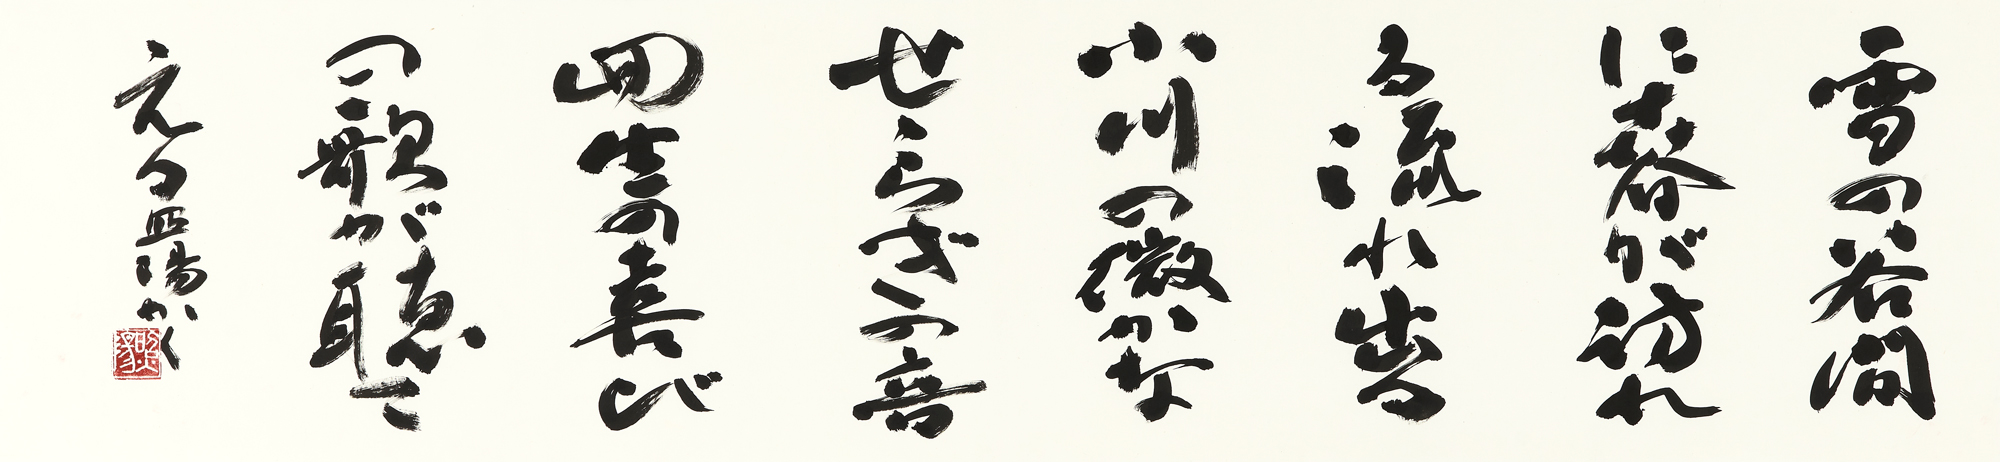 雪の谷間
に春が訪れ
る流れ出る
小川の微かな
せらぎの音
回生の喜び
の歌が聴こ
える 陽かく